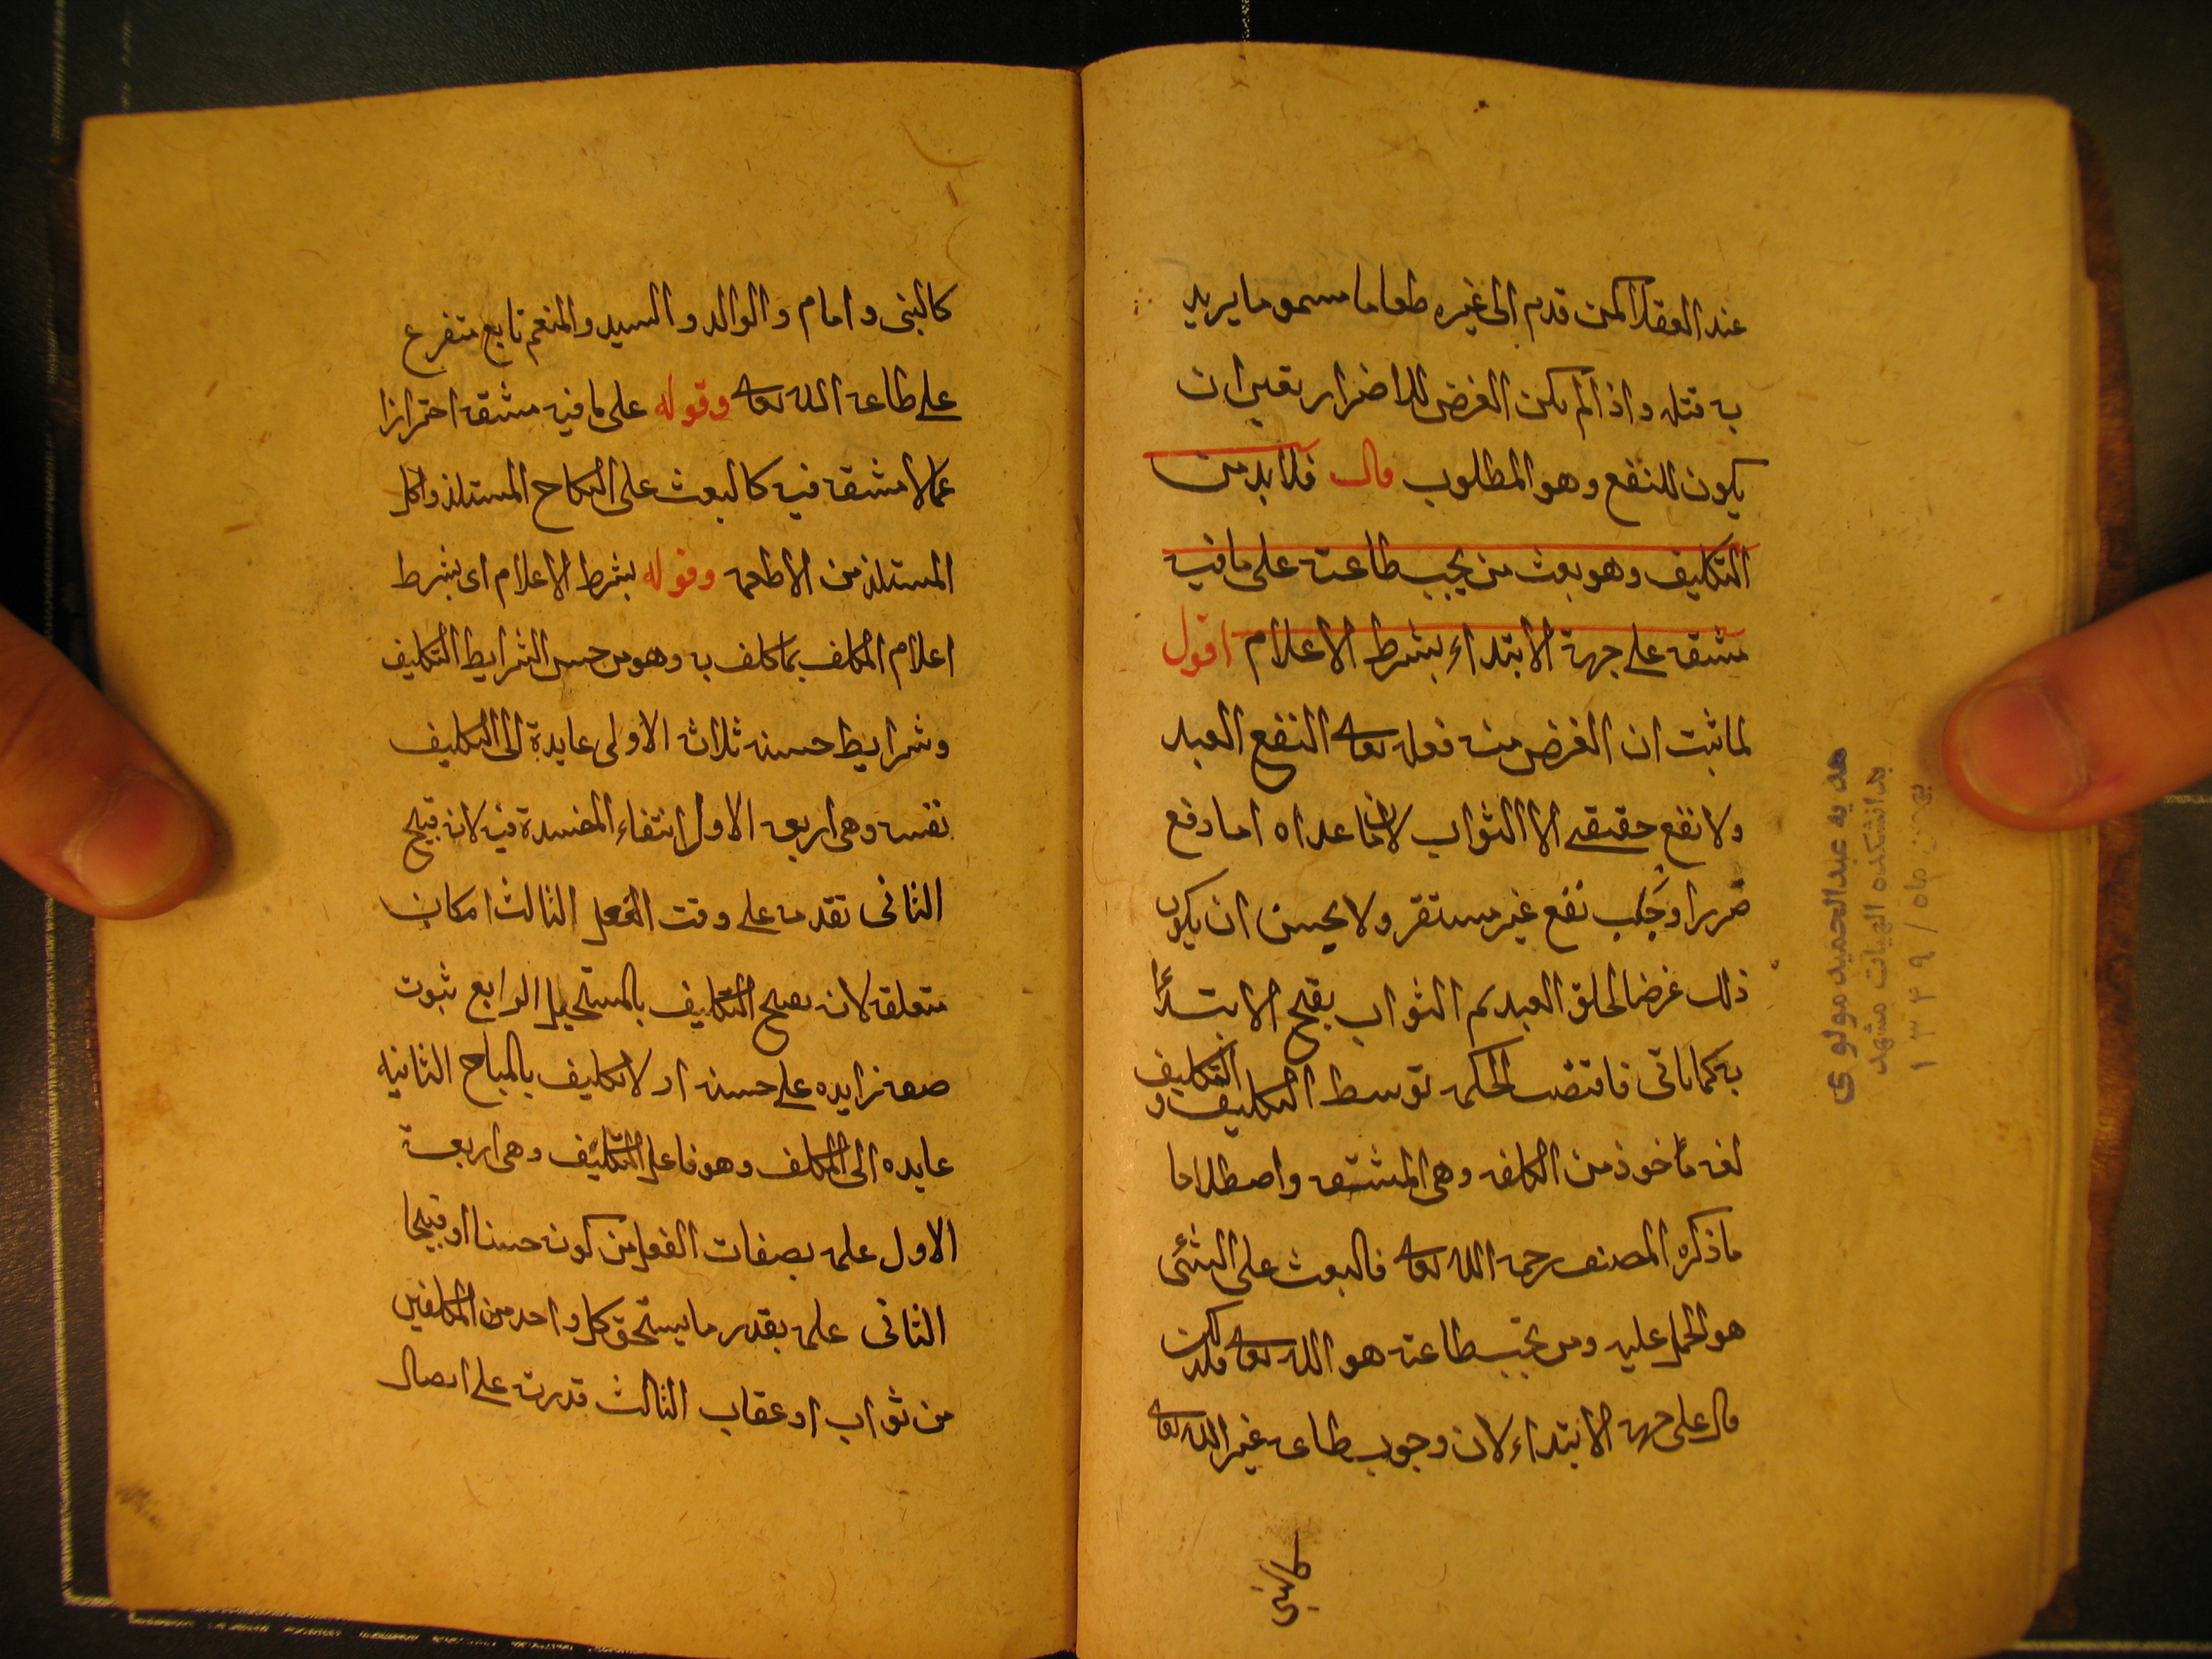 عند العقلا كمن قدم الى غيره طعاما مسموما يريد
به قتله واذا لم يكن الغرض للاضرار تعين ان
يكون للنفع وهو المطلوب قال فلا بد من
التكليف وهو بعث من يجب طاعته على ما فيه
مشقه على جهة الابتداء بشرط الاعلام اقول
لما ثبت ان الغرض من فعله تعالى النفع العبد
ولا نفع حقيقي الا الثواب لان ما عداه اما دفع
ضررا وجلب نفع غير مستقر ولا يحسن ان يكون
ذلك غرضا لخلق العبد ثم الثواب يقبح الابتدأ
به كما ياتى فاقتضت الحكمه توسط التكليف التكليف و
لغه ماخوذ من الكلفه وهى المشقه واصطلاحا
ما ذكره المصنف رحمه الله تعالى فالبعث على الشئى
هو الحمل عليه ومن تجب طاعته هو الله تعالى فلذلك
قال على جهه الابتداء لان وجوب طاعه غير الله تعالى
كالنبى
هديه عبدالحميد مولوى
بدانشكده الهيات مشهد
ماه / ١٣٤٩
كالنبى و امام و الوالد و السيد والمنعم تابع متفرع
على طاعه الله تعالى وقوله على ما فيه مشقه احترازا
عما لا مشقه فيه كالبعث على النكاح المستلذ واكل
المستلذ من الاطعمه وقوله بشرط الاعلام اى بشرط
اعلام المكلف بما كلف به وهو من حسن الشرايط التكليف
وشرايط حسنه ثلاث الاولى عايدة الى التكليف
نفسه وهى اربعه الاول انتفاء المفسدة فيه لانه قبيح
الثانى تقدمه على وقت الفعل الثالث امكان
متعلقه لانه يصح التكليف بالمستحيل الرابع ثبوت
صفه زايده على حسنه اذ لا تكليف بالمباح الثانيه
عايده الى المكلف وهو فاعل التكليف وهى اربعة
الاول علمه بصفات الفعل من كونه حسنا او قبيحا
الثانى علمه بقدر ما يستحق كل واحد من المكلفين
من ثواب او عقاب الثالث قدرته على ايصال